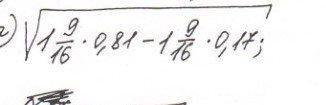 г) √(1 9/16 · 0,81 − 1 9/16 · 0,17;)